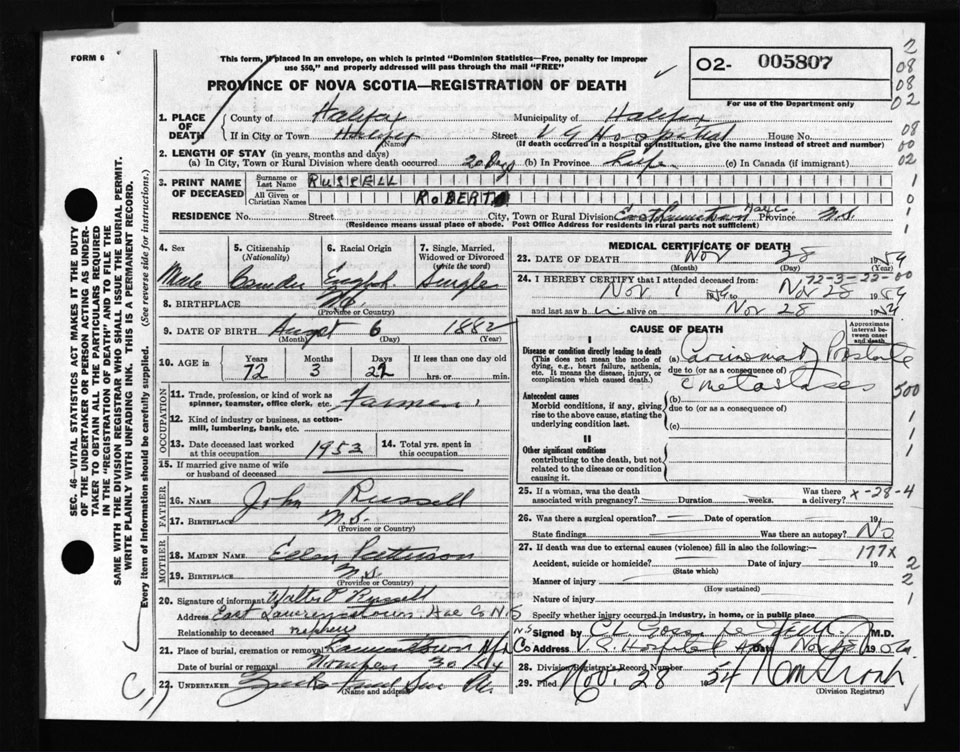 FORM 6
This form, if placed in an envelope, on which is printed "Dominion Statistics—Free, penalty for improper
use $50," and properly addressed will pass through the mail "FREE"
PROVINCE OF NOVA SCOTIA—REGISTRATION OF DEATH
02- 005807
For use of the Department only
2
08
08
02
1. PLACE OF DEATH
County of Halifax Municipality of Halifax
If in City or Town Halifax Street V G Hospital House No.
(Name) (If death occurred in a hospital or institution, give the name instead of street and number)
08
00
02
2. LENGTH OF STAY (in years, months and days)
(a) In City, Town or Rural Division where death occurred 20 Days (b) In Province Life (c) In Canada (if immigrant)
3. PRINT NAME OF DECEASED
Surname or Last Name RUSSELL
All Given or Christian Names ROBERT
RESIDENCE No. Street City, Town or Rural Division East Lawrencetown Province N.S.
(Residence means usual place of abode. Post Office Address for residents in rural parts not sufficient)
4. Sex Male
5. Citizenship (Nationality)
6. Racial Origin English
7. Single, Married, Widowed or Divorced (write the word) Single
8. BIRTHPLACE N.S.
(Province or Country)
9. DATE OF BIRTH August 6 1882
(Month) (Day) (Year)
10. AGE in Years Months Days If less than one day old
72 3 22 hrs. or min.
OCCUPATION
11. Trade, profession, or kind of work as spinner, teamster, office clerk, etc. Farmer
12. Kind of industry or business, as cotton-mill, lumbering, bank, etc.
13. Date deceased last worked at this occupation 1953
14. Total yrs. spent in this occupation
15. If married give name of wife or husband of deceased
FATHER
16. NAME John Russell
17. BIRTHPLACE N.S.
(Province or Country)
MOTHER
18. MAIDEN NAME Ellen Patterson
19. BIRTHPLACE N.S.
(Province or Country)
20. Signature of informant Walter P Russell
Address East Lawrencetown Hfx Co N.S
Relationship to deceased nephew
21. Place of burial, cremation or removal Lawrencetown
Date of burial or removal November 30/54
22. UNDERTAKER
(Name and address)
MEDICAL CERTIFICATE OF DEATH
23. DATE OF DEATH Nov 28 1954
(Month) (Day) (Year)
72-3-22-00
24. I HEREBY CERTIFY that I attended deceased from:
Nov 1 1954 to Nov 28 1954
and last saw h alive on Nov 28 1954
CAUSE OF DEATH
Approximate interval between onset and death
I
Disease or condition directly leading to death
(This does not mean the mode of dying, e.g., heart failure, asthenia, etc. It means the disease, injury, or complication which caused death.)
(a) Carcinoma of Prostate
due to (or as a consequence of)
c metastases
Antecedent causes
Morbid conditions, if any, giving rise to the above cause, stating the underlying condition last.
(b)
due to (or as a consequence of)
(c)
500
II
Other significant conditions
contributing to the death, but not related to the disease or condition causing it.
25. If a woman, was the death associated with pregnancy? Duration weeks. Was there a delivery?
x-28-4
26. Was there a surgical operation? Date of operation 19
State findings Was there an autopsy? No
27. If death was due to external causes (violence) fill in also the following:—
177x
Accident, suicide or homicide? Date of injury 19
(State which)
Manner of injury
(How sustained)
Nature of injury
Specify whether injury occurred in industry, in home, or in public place
Signed by M.D.
Address V. G. Hospital Date Nov 28 19
28. Division Registrar's Record Number
29. Filed Nov. 28 1954
(Division Registrar)
SEC. 46—VITAL STATISTICS ACT MAKES IT THE DUTY
OF THE UNDERTAKER OR PERSON ACTING AS UNDER-
TAKER TO OBTAIN ALL THE PARTICULARS REQUIRED
IN THE "REGISTRATION OF DEATH" AND TO FILE THE
SAME WITH THE DIVISION REGISTRAR WHO SHALL ISSUE THE BURIAL PERMIT.
WRITE PLAINLY WITH UNFADING INK. THIS IS A PERMANENT RECORD.
Every item of information should be carefully supplied. (See reverse side for instructions.)